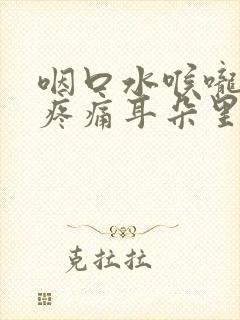 咽口水喉嚨
疼痛耳朵里
克拉拉